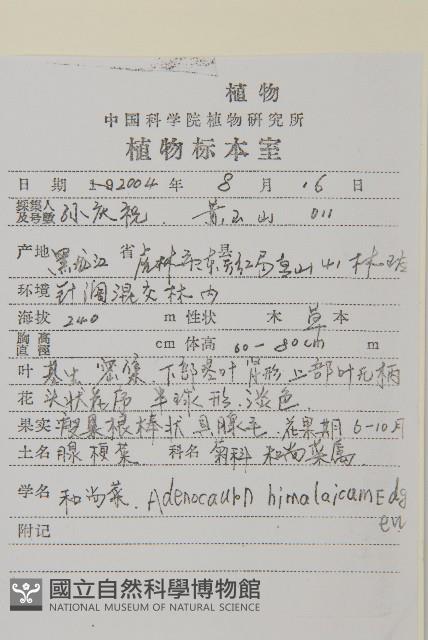 植物
中国科学院植物研究所
植物标本室
日 期 1-92004 年 8 月 16 日
採集人及号數 孙庆祝 黄玉山 011
产地 黑龙江 省 虎林市东 县 林
环境 针阔混交林内
海拔 240 m 性状 木 草 本
胸高直徑 cm 体高 60-80cm m
叶 基生 密集.下部茎叶肾形上部叶无柄
花 头状花序 半球形.淡色.
果实 瘦果棍棒状具腺毛.花果期6-10月
土名 腺梗菜 科名 菊科 和尚菜属
学名 和尚菜. Adenocaulon himalaicum Edgew
附记
國立自然科學博物館
NATIONAL MUSEUM OF NATURAL SCIENCE